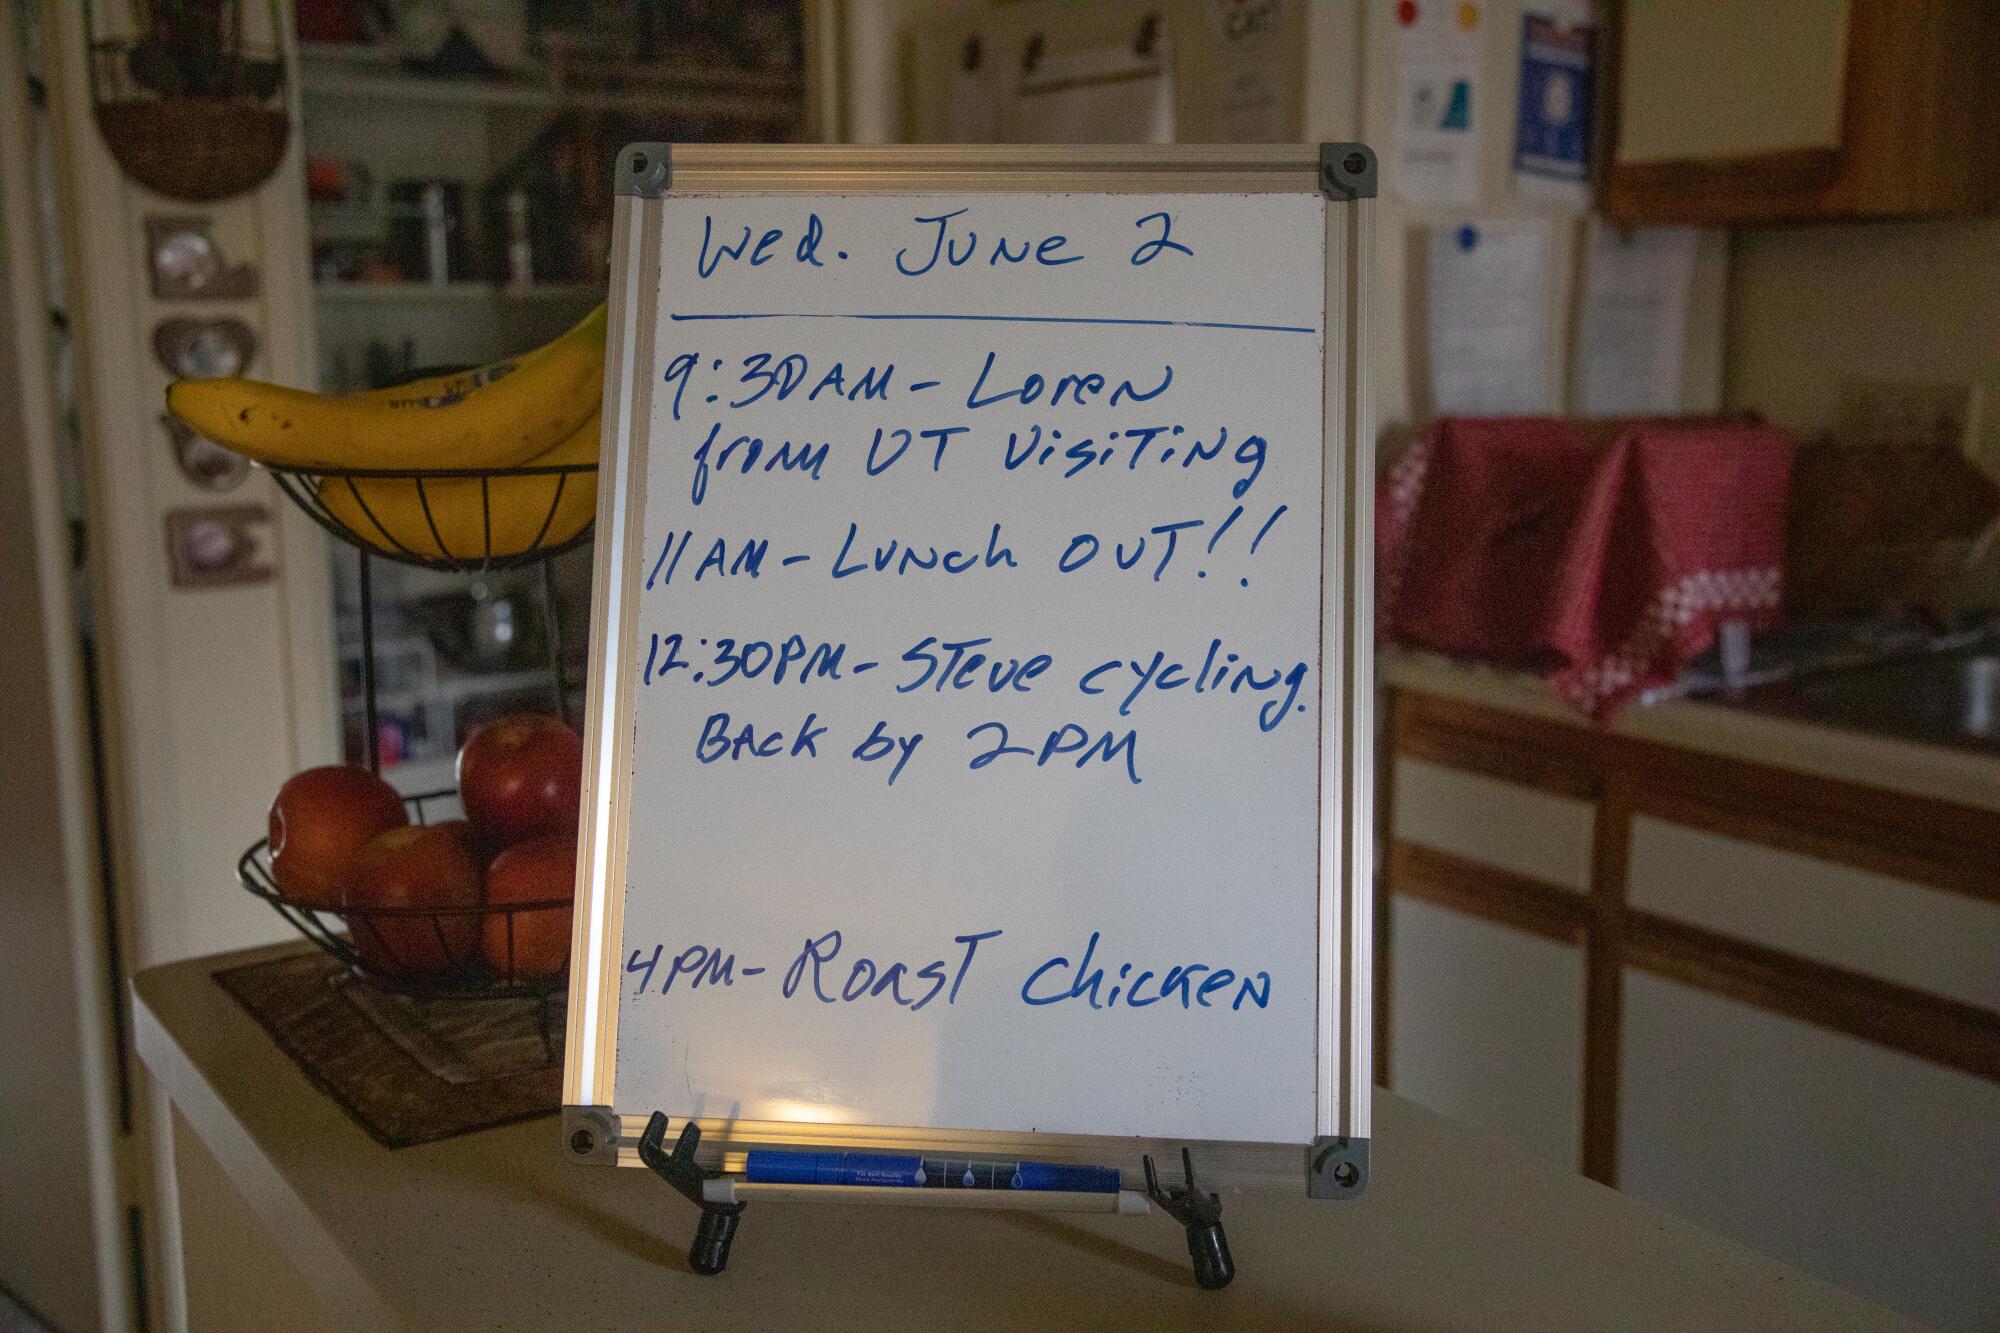 Wed. June 2
9:30AM - Loren
from UT Visiting
11AM - Lunch OUT!!
12:30PM - Steve cycling.
Back by 2PM
4PM - Roast Chicken